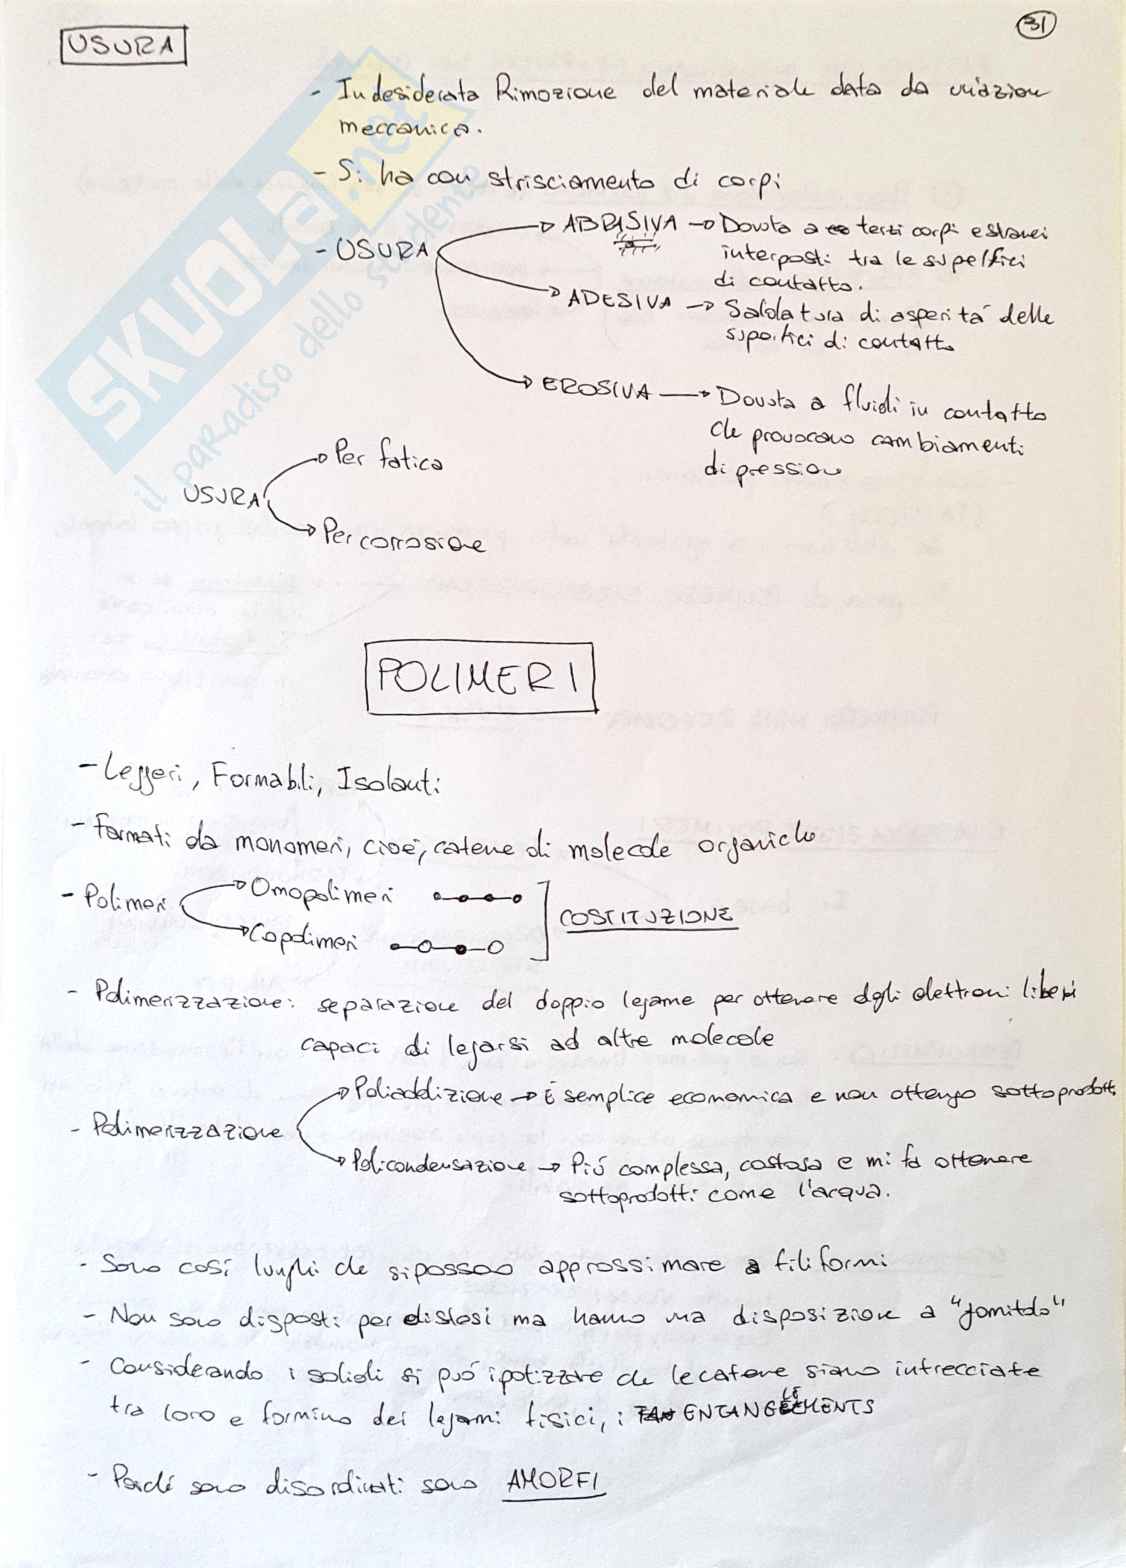 USURA
31
- Indesiderata Rimozione del materiale data da un'azione
meccanica.
- Si ha con strisciamento di corpi
- USURA
ABRASIVA → Dovuta a terzi corpi estranei
interposti tra le superfici
di contatto.
ADESIVA → Saldatura di asperitá delle
superfici di contatto
EROSIVA → Dovuta a fluidi in contatto
che provocano cambiamenti
di pressione
USURA
Per fatica
Per corrosione
POLIMERI
- Leggeri, Formabili, Isolanti
- Formati da monomeri, cioé, catene di molecole organiche
- Polimeri
Omopolimeri
Copolimeri
COSTITUZIONE
- Polimerizzazione: separazione del doppio legame per ottenere dgli elettroni liberi
capaci di legarsi ad altre molecole
- Polimerizzazione
Poliaddizione → É semplice economica e non ottengo sottoprodotti
Policondensazione → Piú complessa, costosa e mi fa ottenere
sottoprodotti come l'acqua.
- Sono cosí lunghi che si possono approssimare a filiformi
- Non sono disposti per distesi ma hanno una disposizione a "gomitolo"
- Considerando i solidi si puó ipotizzare che le catene siano intrecciate
tra loro e formino dei legami fisici, i ENTANGLEMENTS
- Perché sono disordinati sono AMORFI
SKUOLA.net
il paradiso dello studente